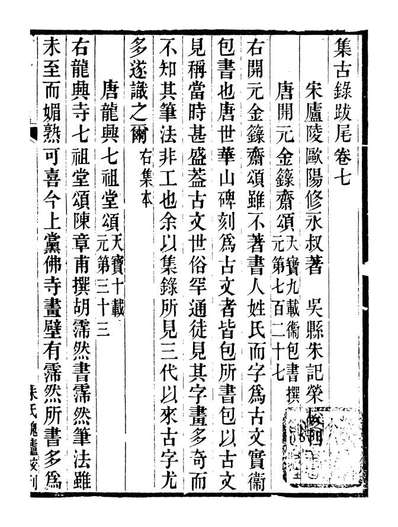 集古錄跋尾卷七
宋廬陵歐陽修永叔著 吳縣朱記榮校刊
唐開元金籙齋頌天寶九載衞包書撰元第七百二十七
右開元金籙齋頌雖不著書人姓氏而字為古文實衞
包書也唐世華山碑刻為古文者皆包所書包以古文
見稱當時甚盛蓋古文世俗罕通徒見其字畫多奇而
不知其筆法非工也余以集錄所見三代以來古字尤
多遂識之爾右集本
唐龍興七祖堂頌天寶十載元第三十三
右龍興寺七祖堂頌陳章甫撰胡霈然書霈然筆法雖
未至而媚熟可喜今上黨佛寺畫壁有霈然所書多為
朱氏槐廬校刊